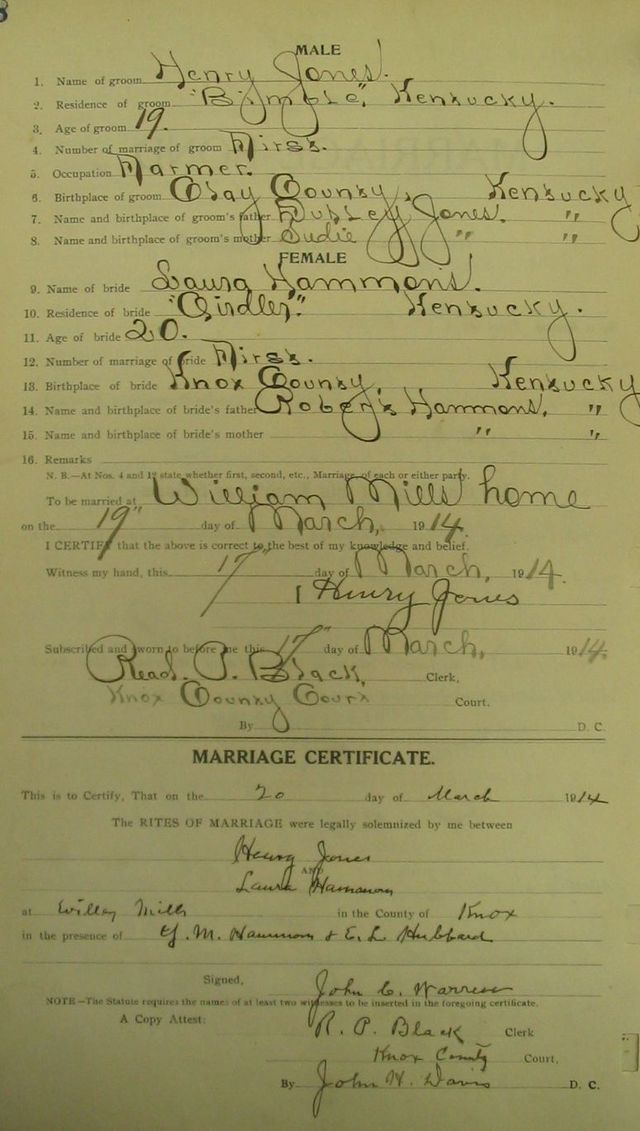 8
MALE
1. Name of groom Henry Jones.
2. Residence of groom "Bimble", Kentucky.
3. Age of groom 19.
4. Number of marriage of groom First.
5. Occupation Farmer.
6. Birthplace of groom Clay County, Kentucky
7. Name and birthplace of groom's father Dudley Jones. "
8. Name and birthplace of groom's mother Sudie " "
FEMALE
9. Name of bride Laura Hammons.
10. Residence of bride "Girdler." Kentucky.
11. Age of bride 20.
12. Number of marriage of bride First.
13. Birthplace of bride Knox County, Kentucky
14. Name and birthplace of bride's father Robert Hammons, "
15. Name and birthplace of bride's mother " "
16. Remarks
N. B.—At Nos. 4 and 12 state whether first, second, etc., Marriage, of each or either party.
To be married at William Mills home
on the 19" day of March, 1914.
I CERTIFY that the above is correct to the best of my knowledge and belief.
Witness my hand, this 17" day of March, 1914.
Henry Jones
Subscribed and sworn to before me this 17" day of March, 1914.
Read. P. Black, Clerk,
Knox County Court Court.
By D. C.
MARRIAGE CERTIFICATE.
This is to Certify, That on the 20 day of March 1914
The RITES OF MARRIAGE were legally solemnized by me between
Henry Jones
AND
Laura Hammons
at Willey Mills in the County of Knox
in the presence of G. M. Hammons & E. L. Hubbard
Signed, John C. Warren
NOTE—The Statute requires the names of at least two witnesses to be inserted in the foregoing certificate.
A Copy Attest: R. P. Black Clerk
Knox County Court,
By John H. Davis D. C.